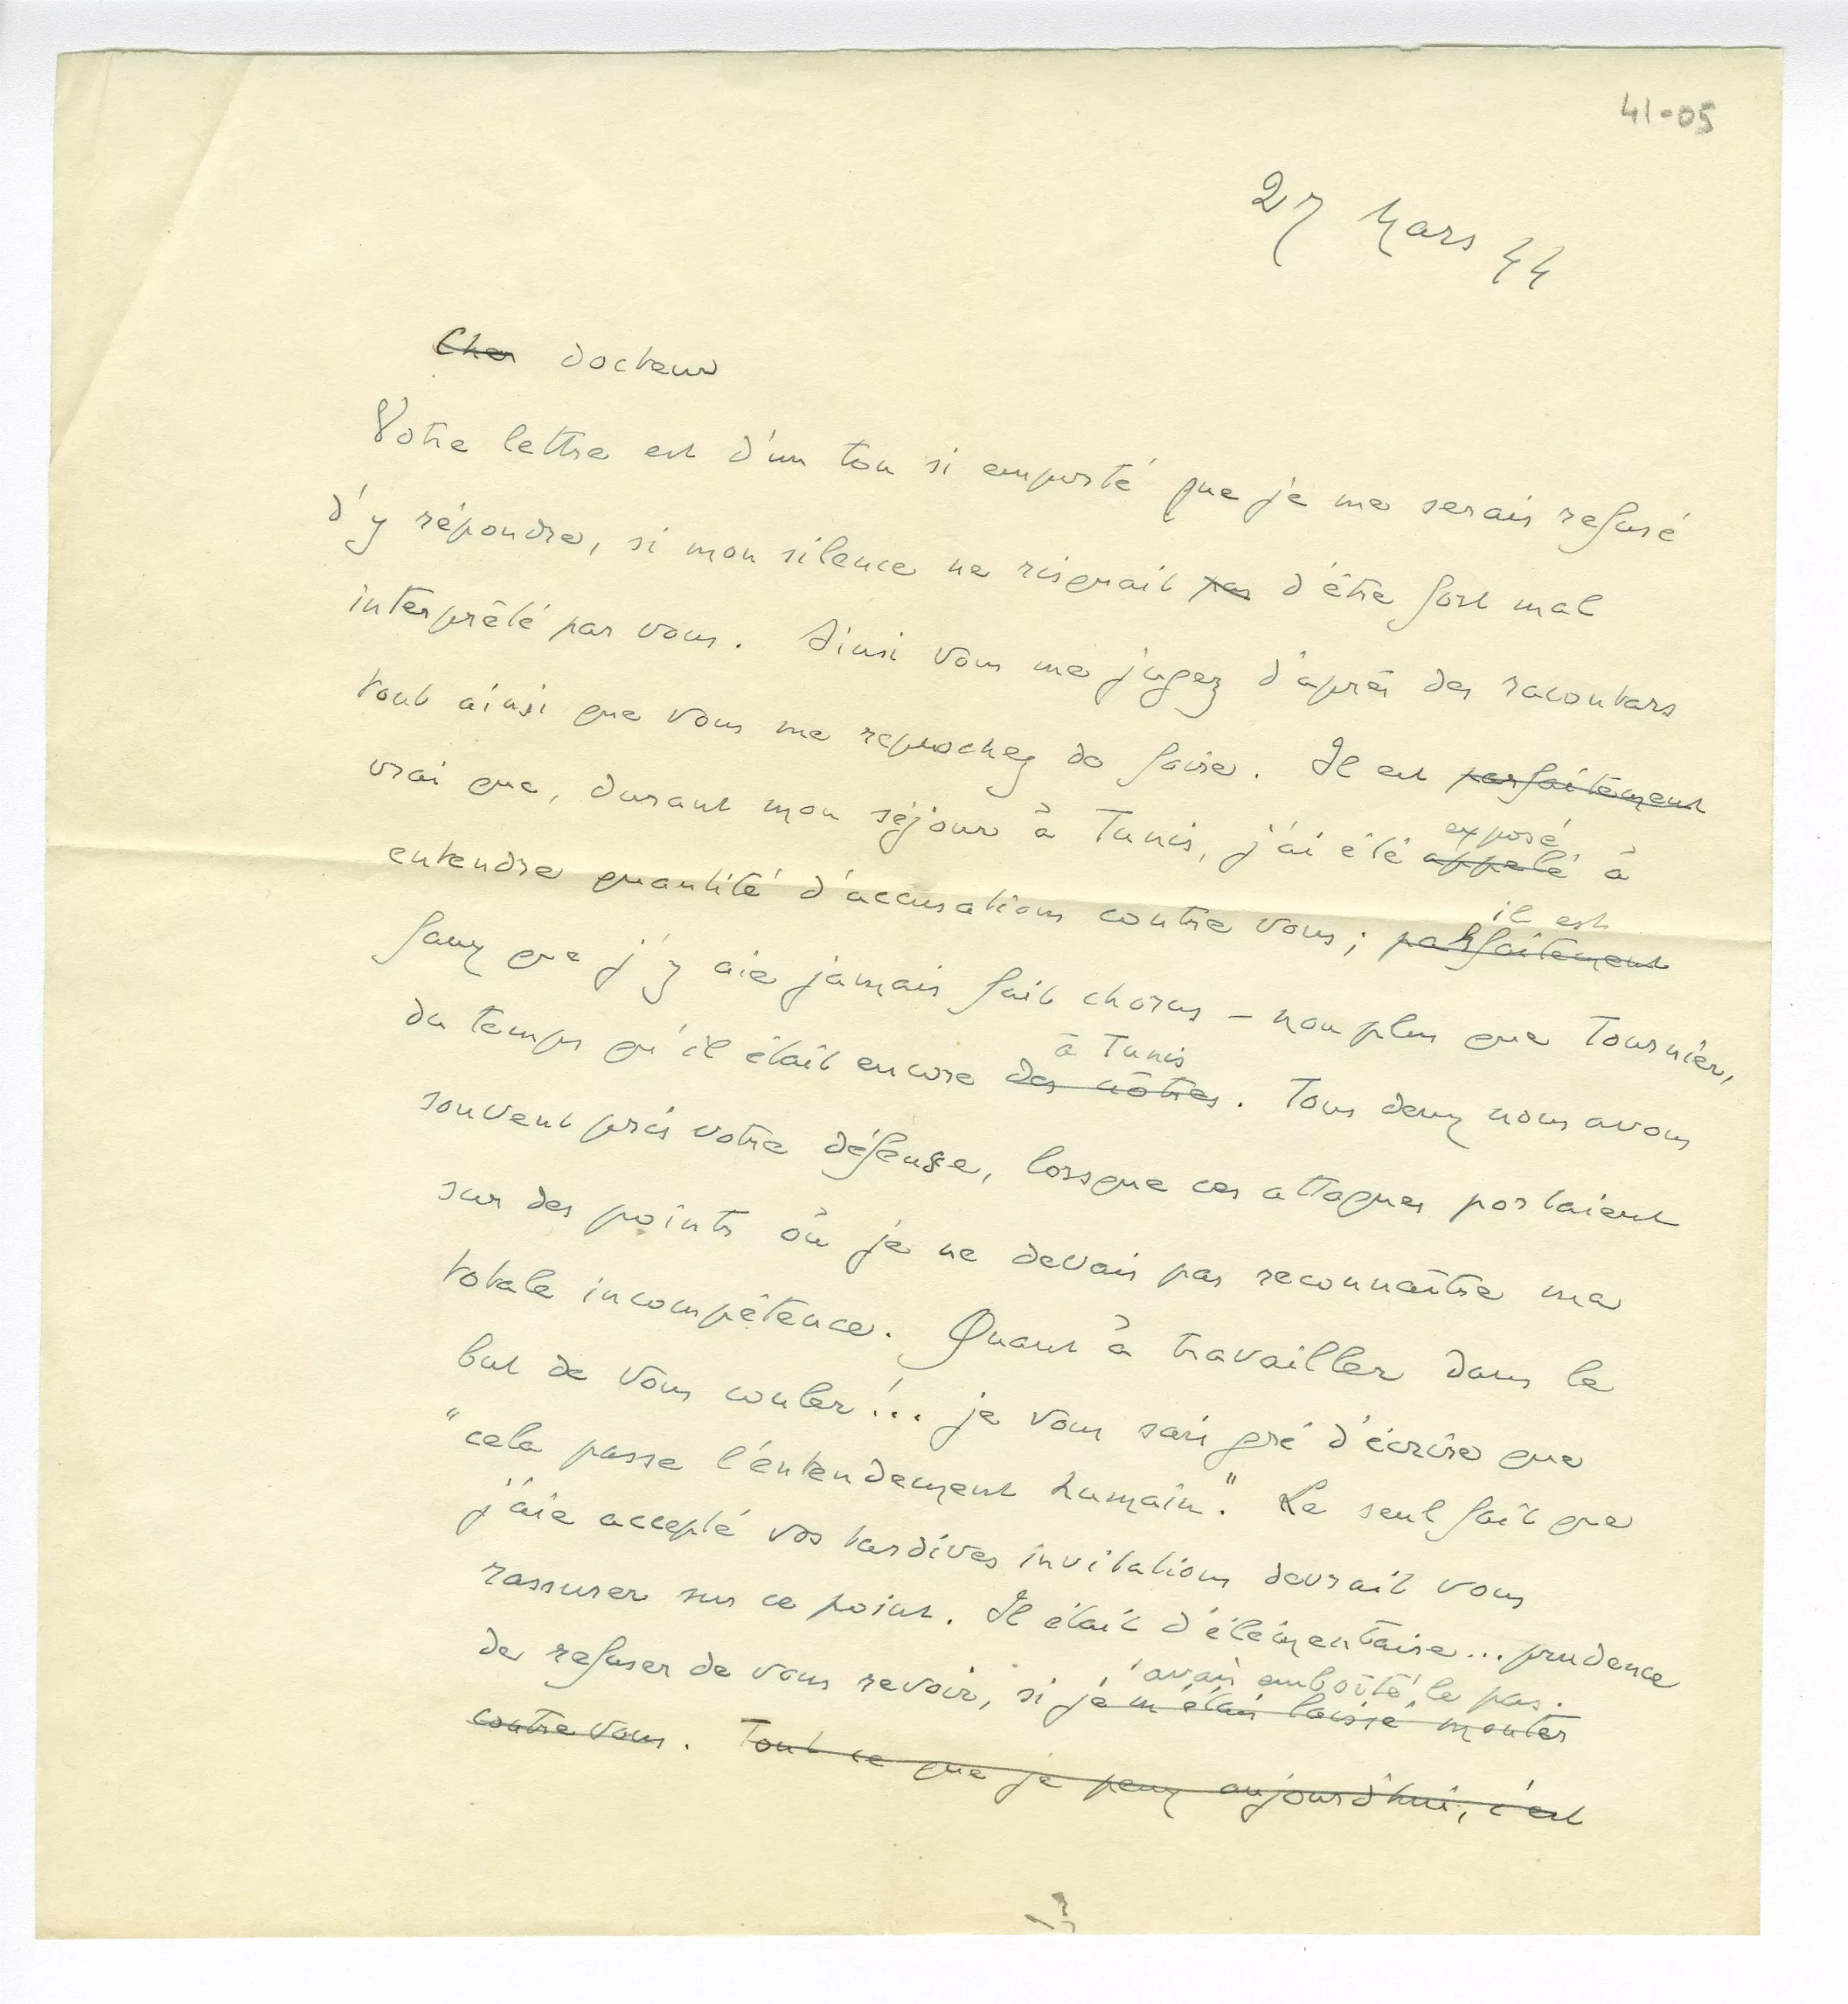 41-05
27 Mars 44
Cher Docteur
Votre lettre est d'un ton si emporté que je me serais refusé
d'y répondre, si mon silence ne risquait pas d'être fort mal
interprété par vous. Ainsi vous me jugez d'après des racontars
tout ainsi que vous me reprochez de faire. Il est parfaitement
vrai que, durant mon séjour à Tunis, j'ai été appelé à
exposé
entendre quantité d'accusations contre vous; parfaitement
il est
faux que j'y aie jamais fait chorus – non plus que Tournier,
du temps qu'il était encore des nôtres. Tous deux nous avons
à Tunis
souvent pris votre défense, lorsque ces attaques portaient
sur des points où je ne devais pas reconnaître ma
totale incompétence. Quant à travailler dans le
but de vous couler!... je vous sais gré d'écrire que
"cela passe l'entendement humain". Le seul fait que
j'aie accepté vos tardives invitations devrait vous
rassurer sur ce point. Il était d'élémentaire... prudence
de refuser de vous revoir, si je m'étais laissé monter
j'avais emboîté le pas.
contre vous. Tout ce que je peux aujourd'hui, c'est